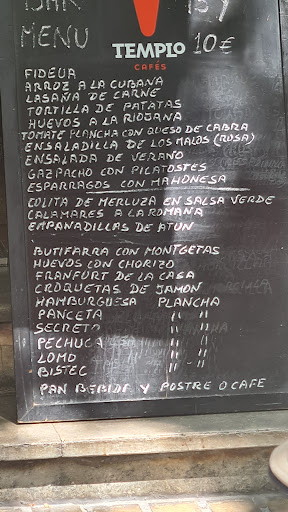 BAR
MENU 10€
TEMPLO
CAFÉS
FIDEUA
ARROZ A LA CUBANA
LASAÑA DE CARNE
TORTILLA DE PATATAS
HUEVOS A LA RIOJANA
TOMATE PLANCHA CON QUESO DE CABRA
ENSALADILLA DE LOS MALOS (ROSA)
ENSALADA DE VERANO
GAZPACHO CON PILATOSTES
ESPARRAGOS CON MAHONESA
COLITA DE MERLUZA EN SALSA VERDE
CALAMARES A LA ROMANA
EMPANADILLAS DE ATUN
BUTIFARRA CON MONTGETAS
HUEVOS CON CHORIZO
FRANFURT DE LA CASA
CROQUETAS DE JAMON
HAMBURGUESA PLANCHA
PANCETA " "
SECRETO " "
PECHUGA " - "
LOMO " - "
BISTEC " - "
PAN BEBIDE Y POSTRE O CAFE